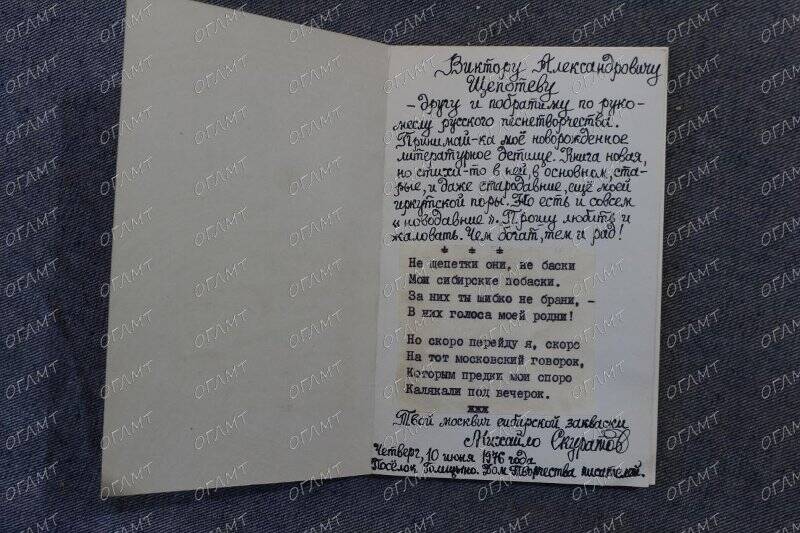 Виктору Александровичу
Щепотеву
– другу и побратиму по руко-
меслу русского песнетворчества.
Принимай-ка моё новорожденное
литературное детище. Книга новая,
но стихи-то в ней, в основном, ста-
рые, и даже стародавние, ещё моей
иркутской поры. Но есть и совсем
«новодавние». Прошу любить и
жаловать. Чем богат, тем и рад!
* * *
Не щепетки они, не баски
Мои сибирские побаски.
За них ты шибко не брани, –
В них голоса моей родни!
Но скоро перейду я, скоро
На тот московский говорок,
Которым предки мои споро
Калякали под вечерок.
xxx
Твой москвич сибирской закваски
Михайло Скуратов
Четверг, 10 июня 1976 года
Посёлок Голицыно. Дом Творчества писателей.
ОГАМТ